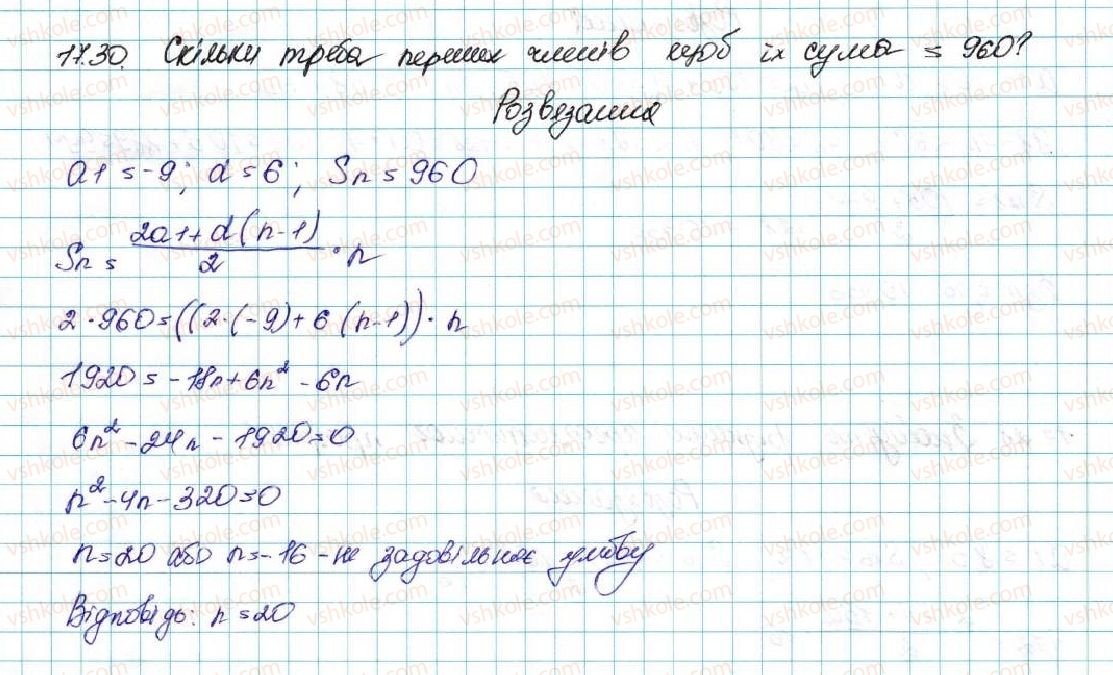 17.30. Скільки треба перших членів щоб їх сума = 960?
Розвязання
a1 = -9; d = 6; Sn = 960
Sn = (2a1 + d(n-1))/2 · n
2 · 960 = ((2·(-9) + 6(n-1)) · n
1920 = -18n + 6n² - 6n
6n² - 24n - 1920 = 0
n² - 4n - 320 = 0
n = 20 або n = -16 - не задовільняє умову
Відповідь: n = 20
vshkole.com